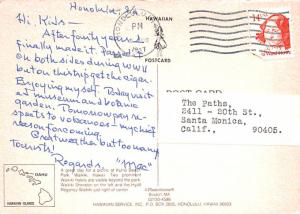 Honolulu, Ha
Hi Kids -
After forty years I
finally made it. Passed it
on both sides during WWII
but on this trip get chicagan.
Enjoying myself. Today visit
a museum and botanic
garden. Tomorrow go on
spects to volcanos - my chief
reason for coming.
Great weather but too many
Tourists!
Regards, "Mac"
HONOLULU
PM
1987
HAWAIIAN
POSTCARD
POST CARD
The Paths,
2411 - 20th St.,
Santa Monica,
Calif., 90405.
OAHU
HAWAIIAN ISLANDS
A great day for a picnic at Kuhio Beach
Park, Waikiki, Hawaii. Two prominent
Waikiki Hotels are visible beyond the park.
Waikiki Sheraton on the left and the Hyatt
Regency Waikiki just right of center.
Boston, MA
HAWAIIAN SERVICE, INC. P.O. BOX 2835, HONOLULU, HAWAII 96803